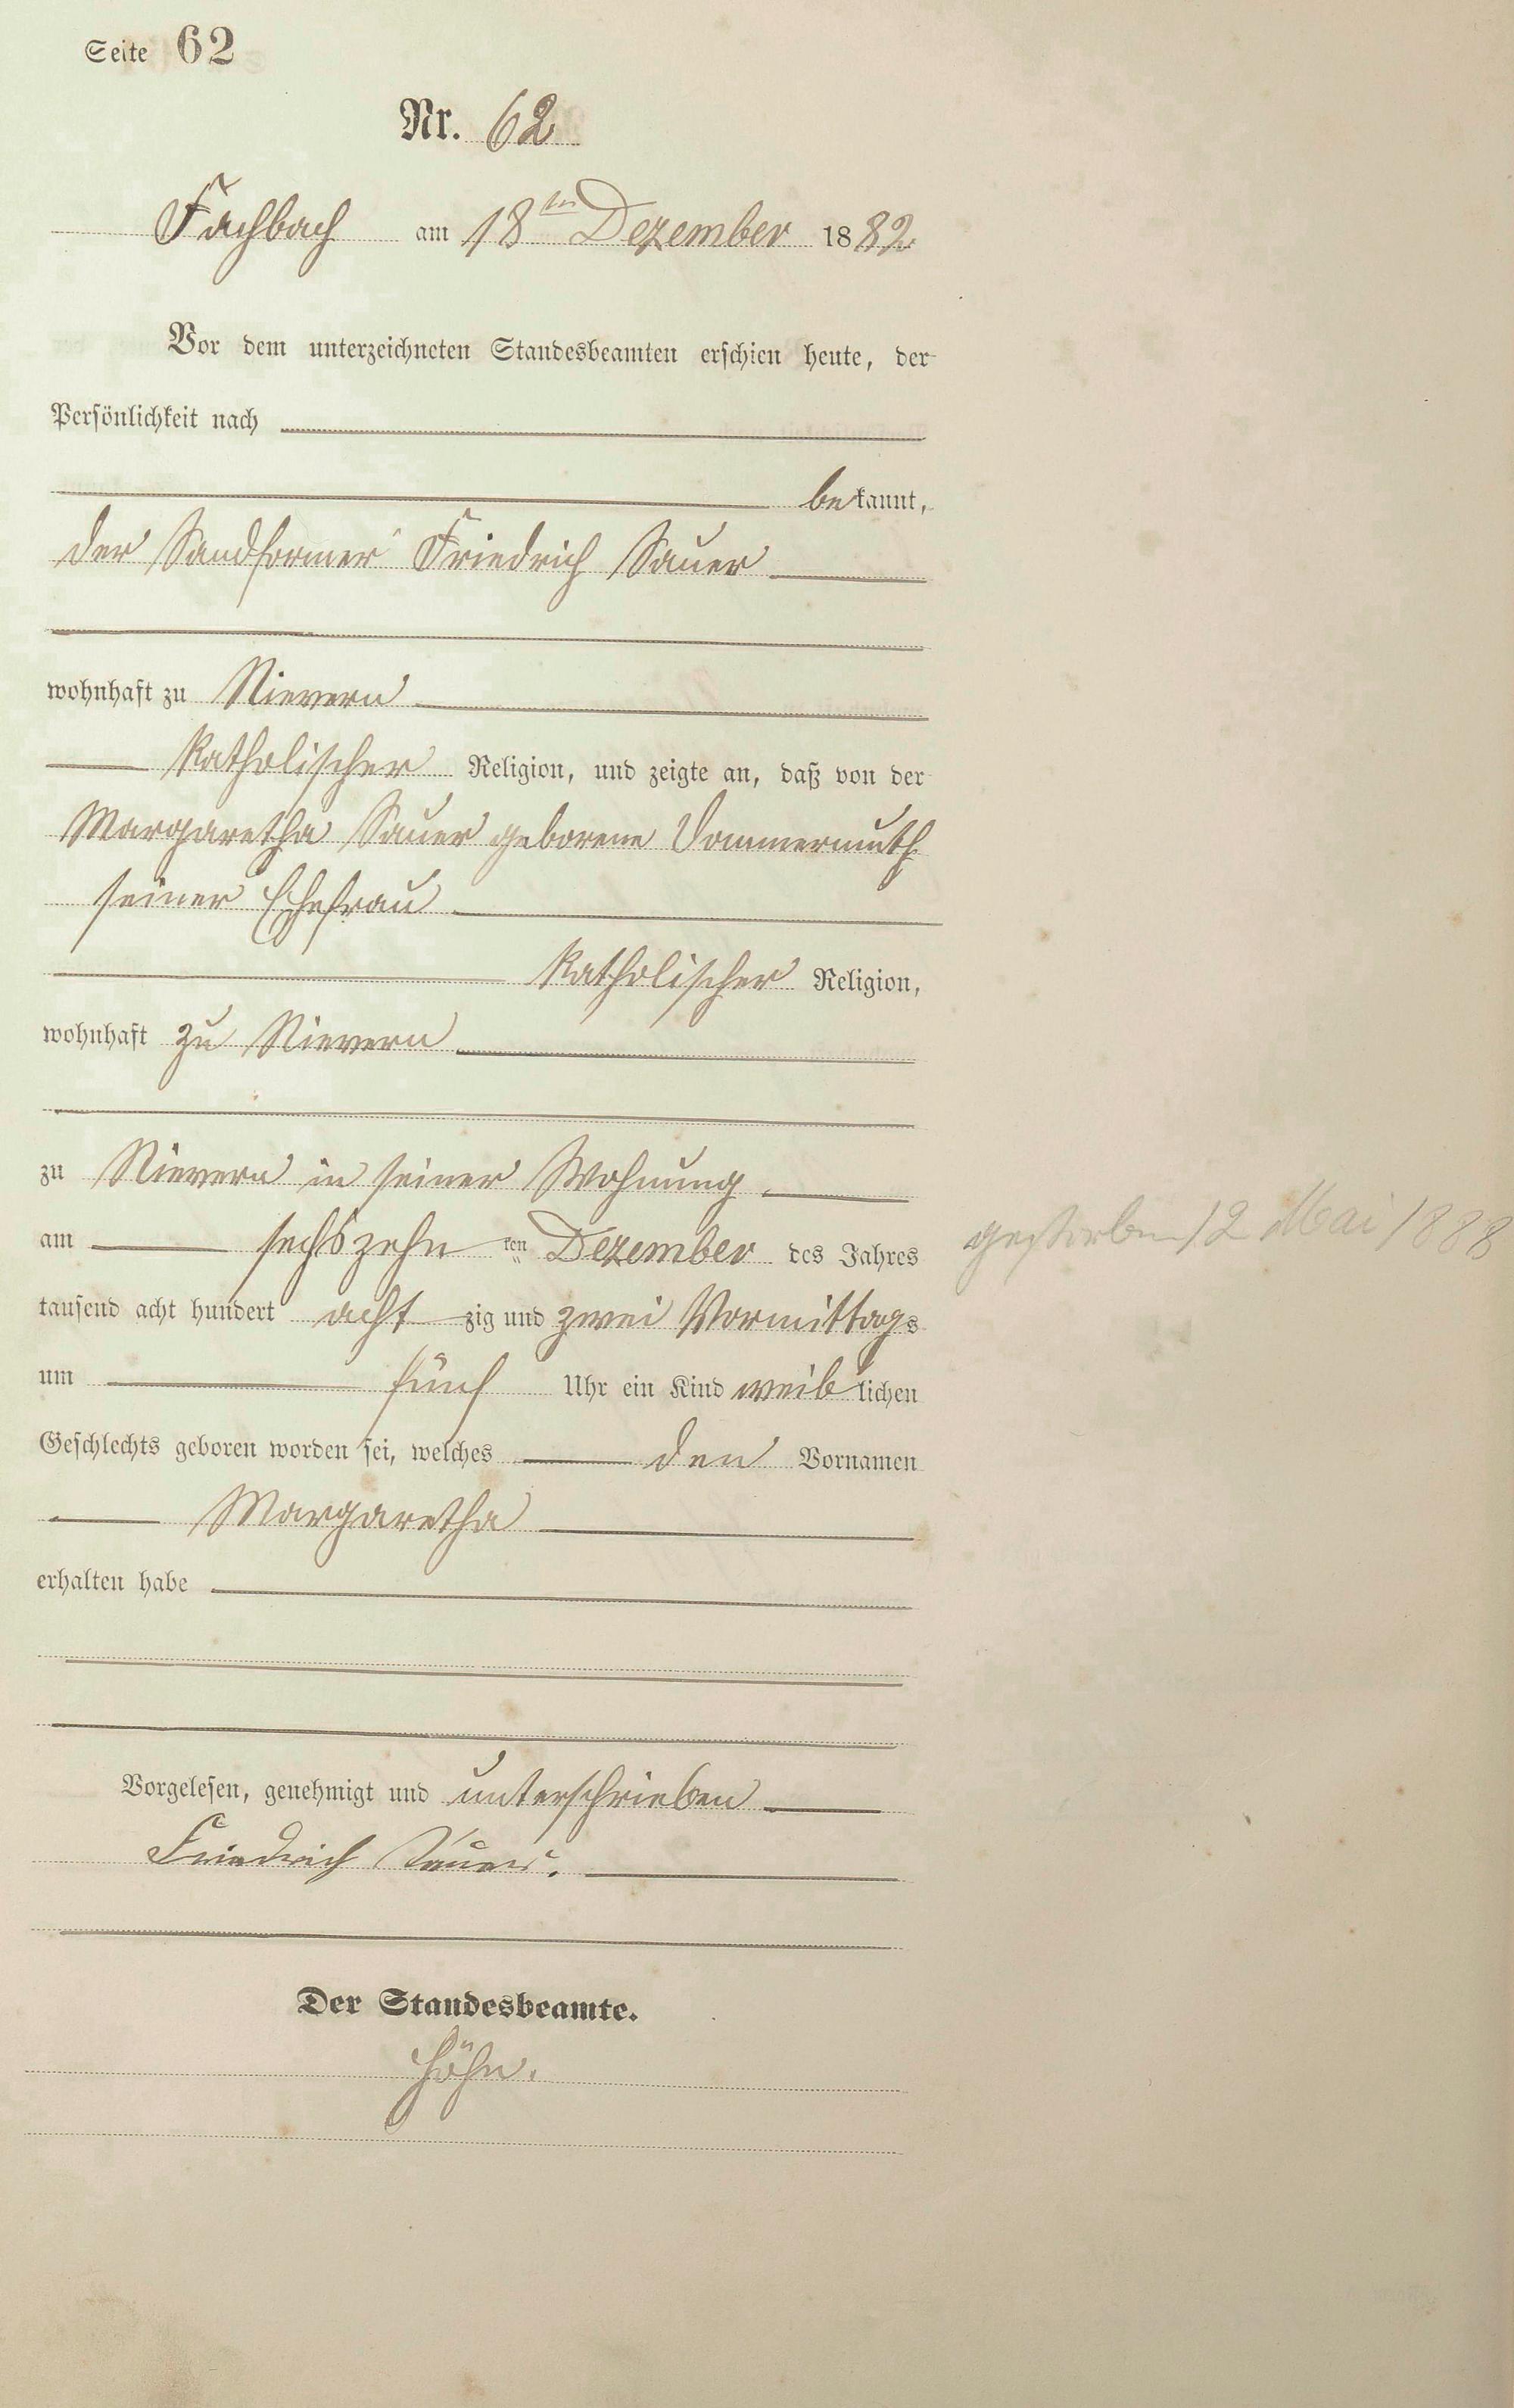 Seite 62
Nr. 62
Fachbach am 18ten Dezember 1882
Vor dem unterzeichneten Standesbeamten erschien heute, der
Persönlichkeit nach
bekannt,
der Sandformer Friedrich Sauer
wohnhaft zu Nievern
katholischer Religion, und zeigte an, daß von der
Margaretha Sauer geborene Dommermuth
seiner Ehefrau
katholischer Religion,
wohnhaft zu Nievern
zu Nievern in seiner Wohnung
am sechszehn ten Dezember des Jahres
tausend acht hundert acht zig und zwei Vormittags
um fünf Uhr ein Kind weiblichen
Geschlechts geboren worden sei, welches den Vornamen
Margaretha
erhalten habe
gestorben 12 Mai 1888
Vorgelesen, genehmigt und unterschrieben
Friedrich Sauer.
Der Standesbeamte.
Höhn.